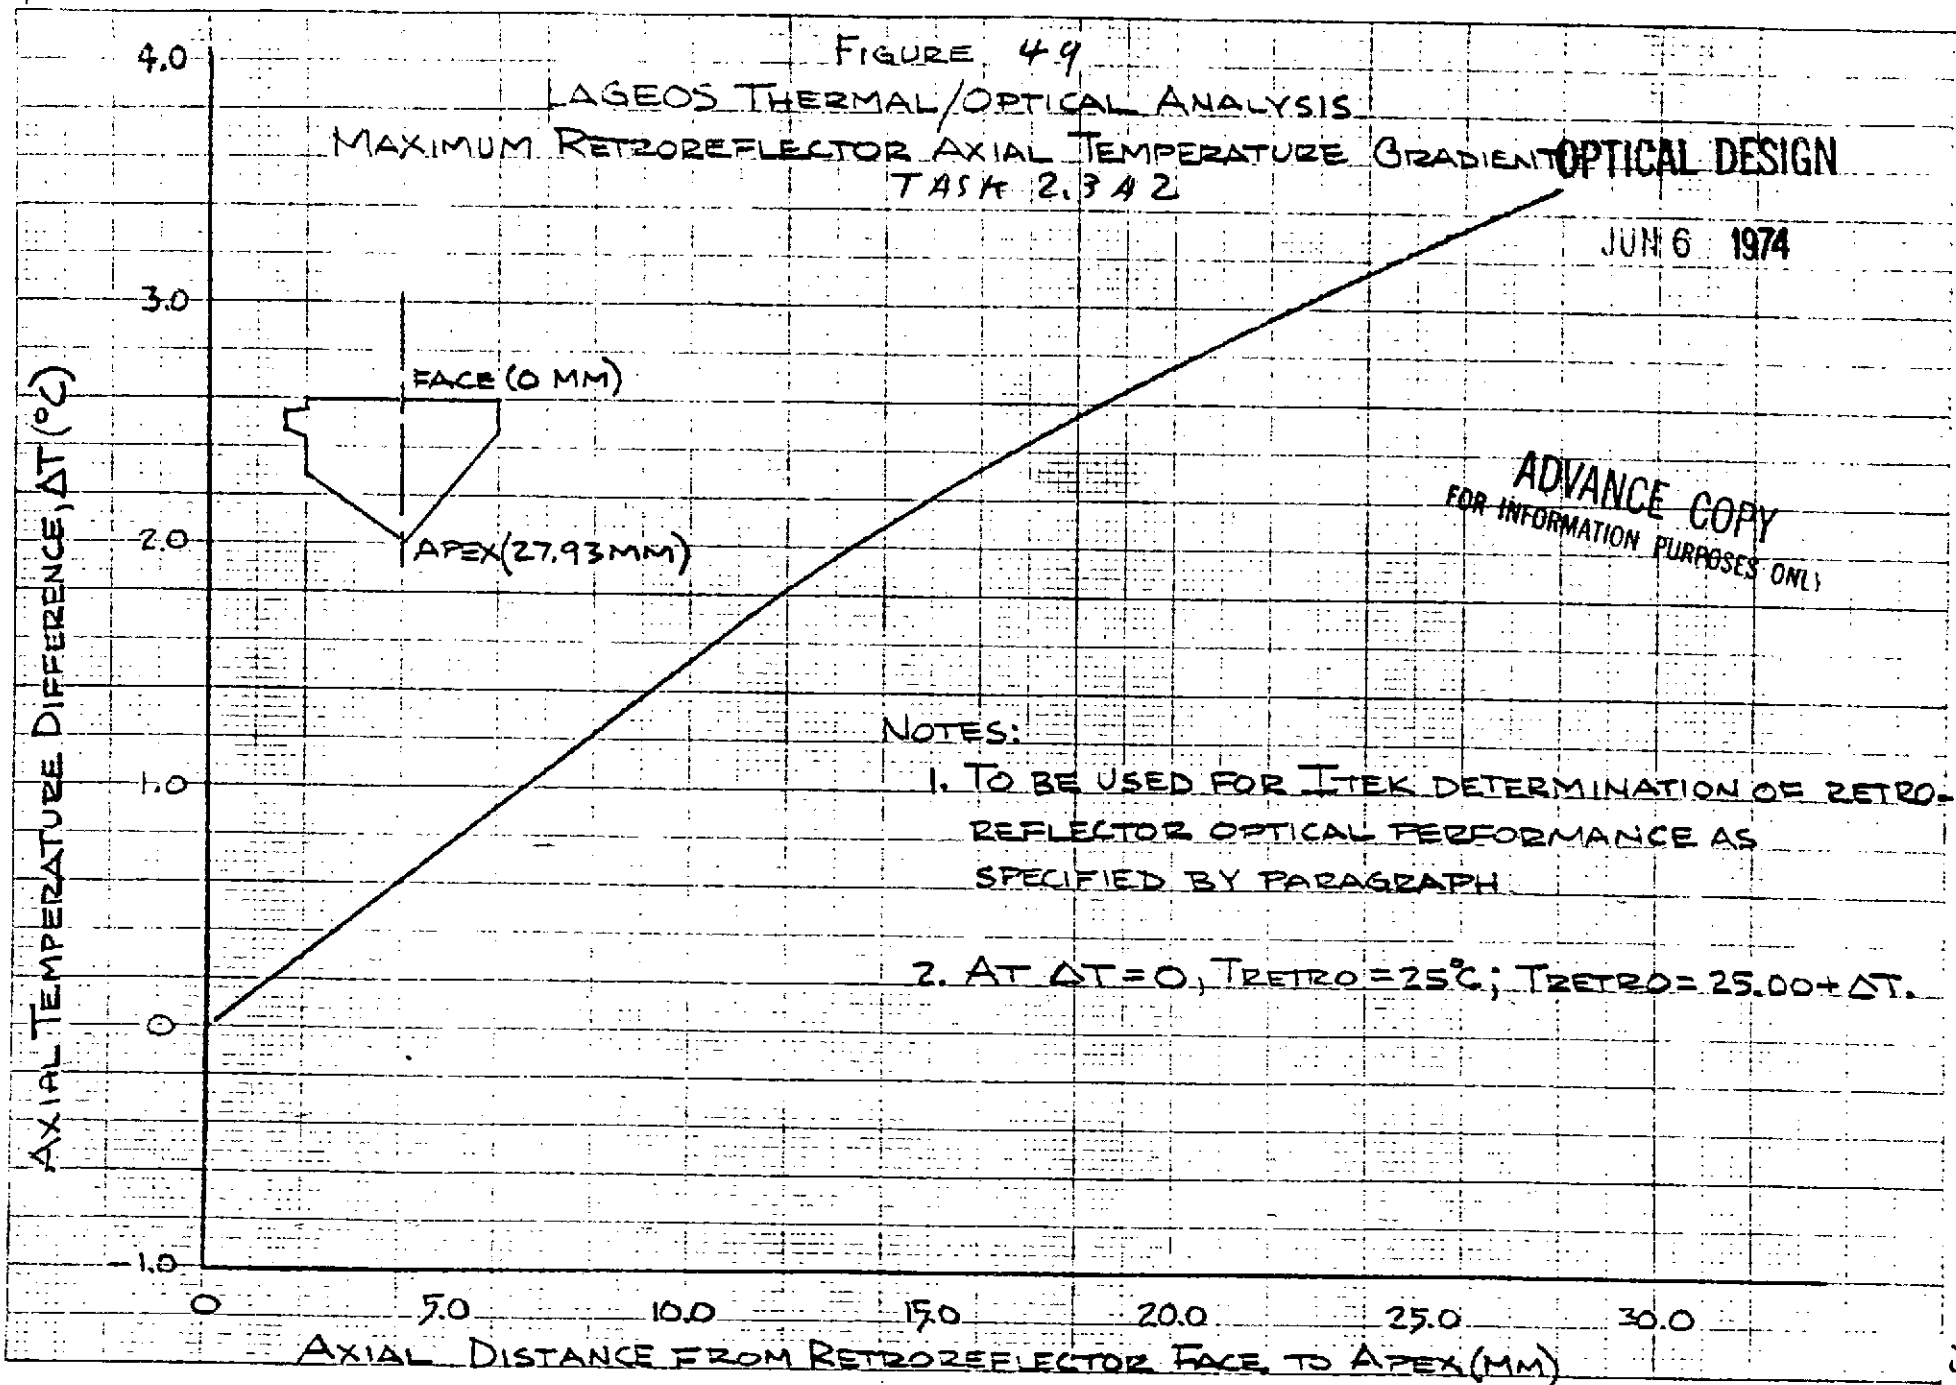 FIGURE 49
LAGEOS THERMAL/OPTICAL ANALYSIS
MAXIMUM RETROREFLECTOR AXIAL TEMPERATURE GRADIENT
TASK 2.3A2
OPTICAL DESIGN
JUN 6 1974
ADVANCE COPY
FOR INFORMATION PURPOSES ONLY
AXIAL TEMPERATURE DIFFERENCE, ΔT (°C)
4.0
3.0
2.0
1.0
0
-1.0
FACE (0 MM)
APEX (27.93 MM)
NOTES:
1. TO BE USED FOR ITEK DETERMINATION OF RETRO-
REFLECTOR OPTICAL PERFORMANCE AS
SPECIFIED BY PARAGRAPH
2. AT ΔT = 0, TRETRO = 25°C; TRETRO = 25.00 + ΔT.
0 5.0 10.0 15.0 20.0 25.0 30.0
AXIAL DISTANCE FROM RETROREFLECTOR FACE TO APEX (MM)